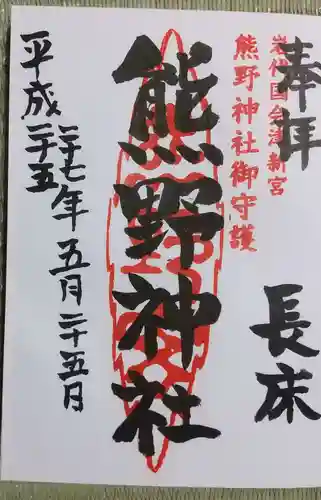 奉拝
岩代国会津新宮
熊野神社御守護
長床
熊野神社
平成二十七年五月二十五日
二十五